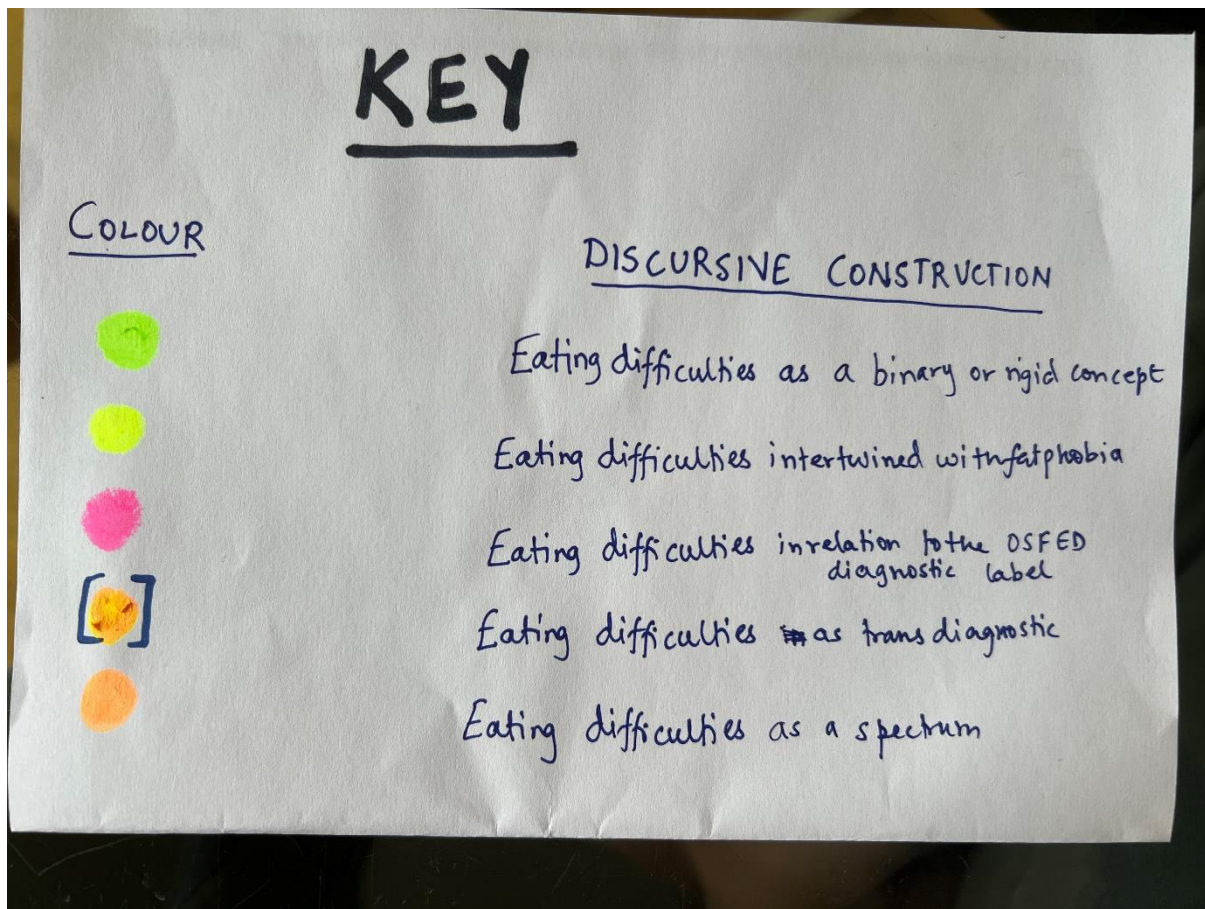 KEY
COLOUR
DISCURSIVE CONSTRUCTION
Eating difficulties as a binary or rigid concept
Eating difficulties intertwined with fatphobia
Eating difficulties in relation to the OSFED
diagnostic label
[ ]
Eating difficulties as trans diagnostic
Eating difficulties as a spectrum